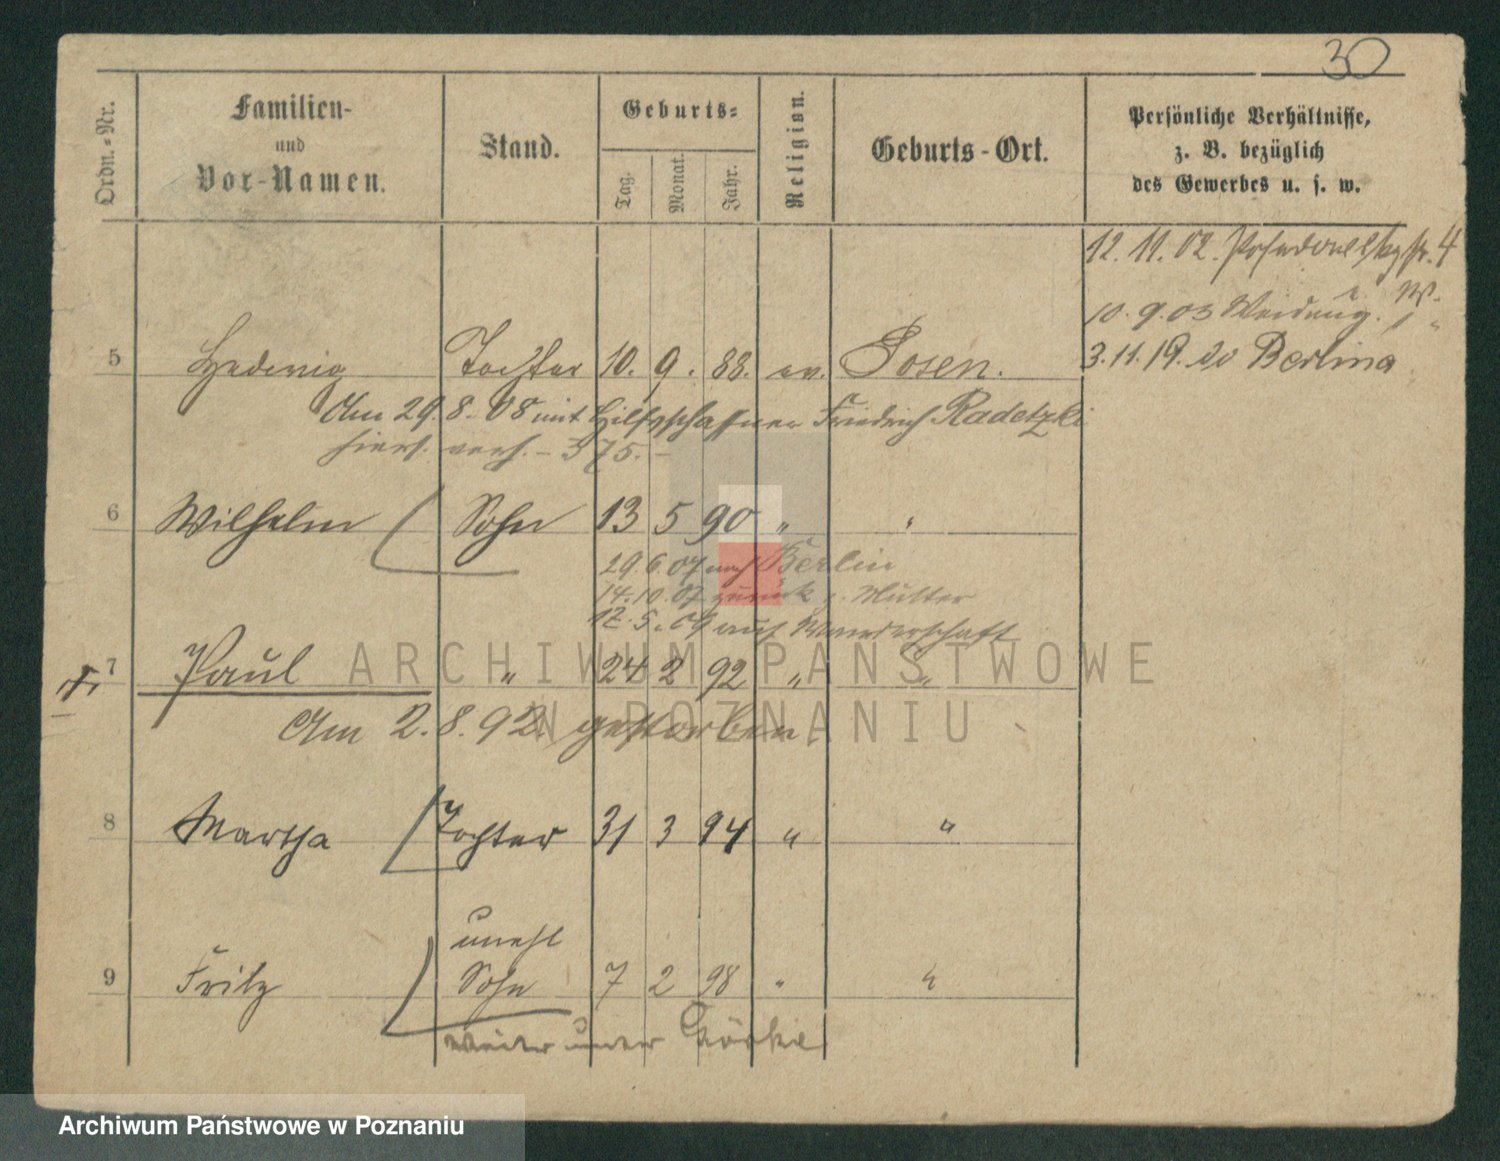 30
Ordn.-Nr.
Familien-
und
Vor-Namen.
Stand.
Geburts-
Tag.
Monat.
Jahr.
Religion.
Geburts-Ort.
Persönliche Verhältnisse,
z. B. bezüglich
des Gewerbes u. s. w.
12. 11. 02. 4
10. 9. 03
3. 11. 19. Berlin
5 Hedwig Tochter 10. 9. 88. ev. Posen.
Am 29. 8. 08 mit Hilfsschaffner Friedrich Radetzki
hiers. verh. – 375. –
6 Wilhelm Sohn 13 5 90 " "
29 6. 07 nach Berlin
14. 10. 07 zurück z. Mutter
12. 5. 09 auf Wanderschaft
7 Paul " 24 2 92 " "
Am 2. 8. 92 gestorben.
8 Martha Tochter 31 3 94 " "
unehl
9 Fritz Sohn 7 2 98 " "
weiter unter
ARCHIWUM PAŃSTWOWE
W POZNANIU
Archiwum Państwowe w Poznaniu